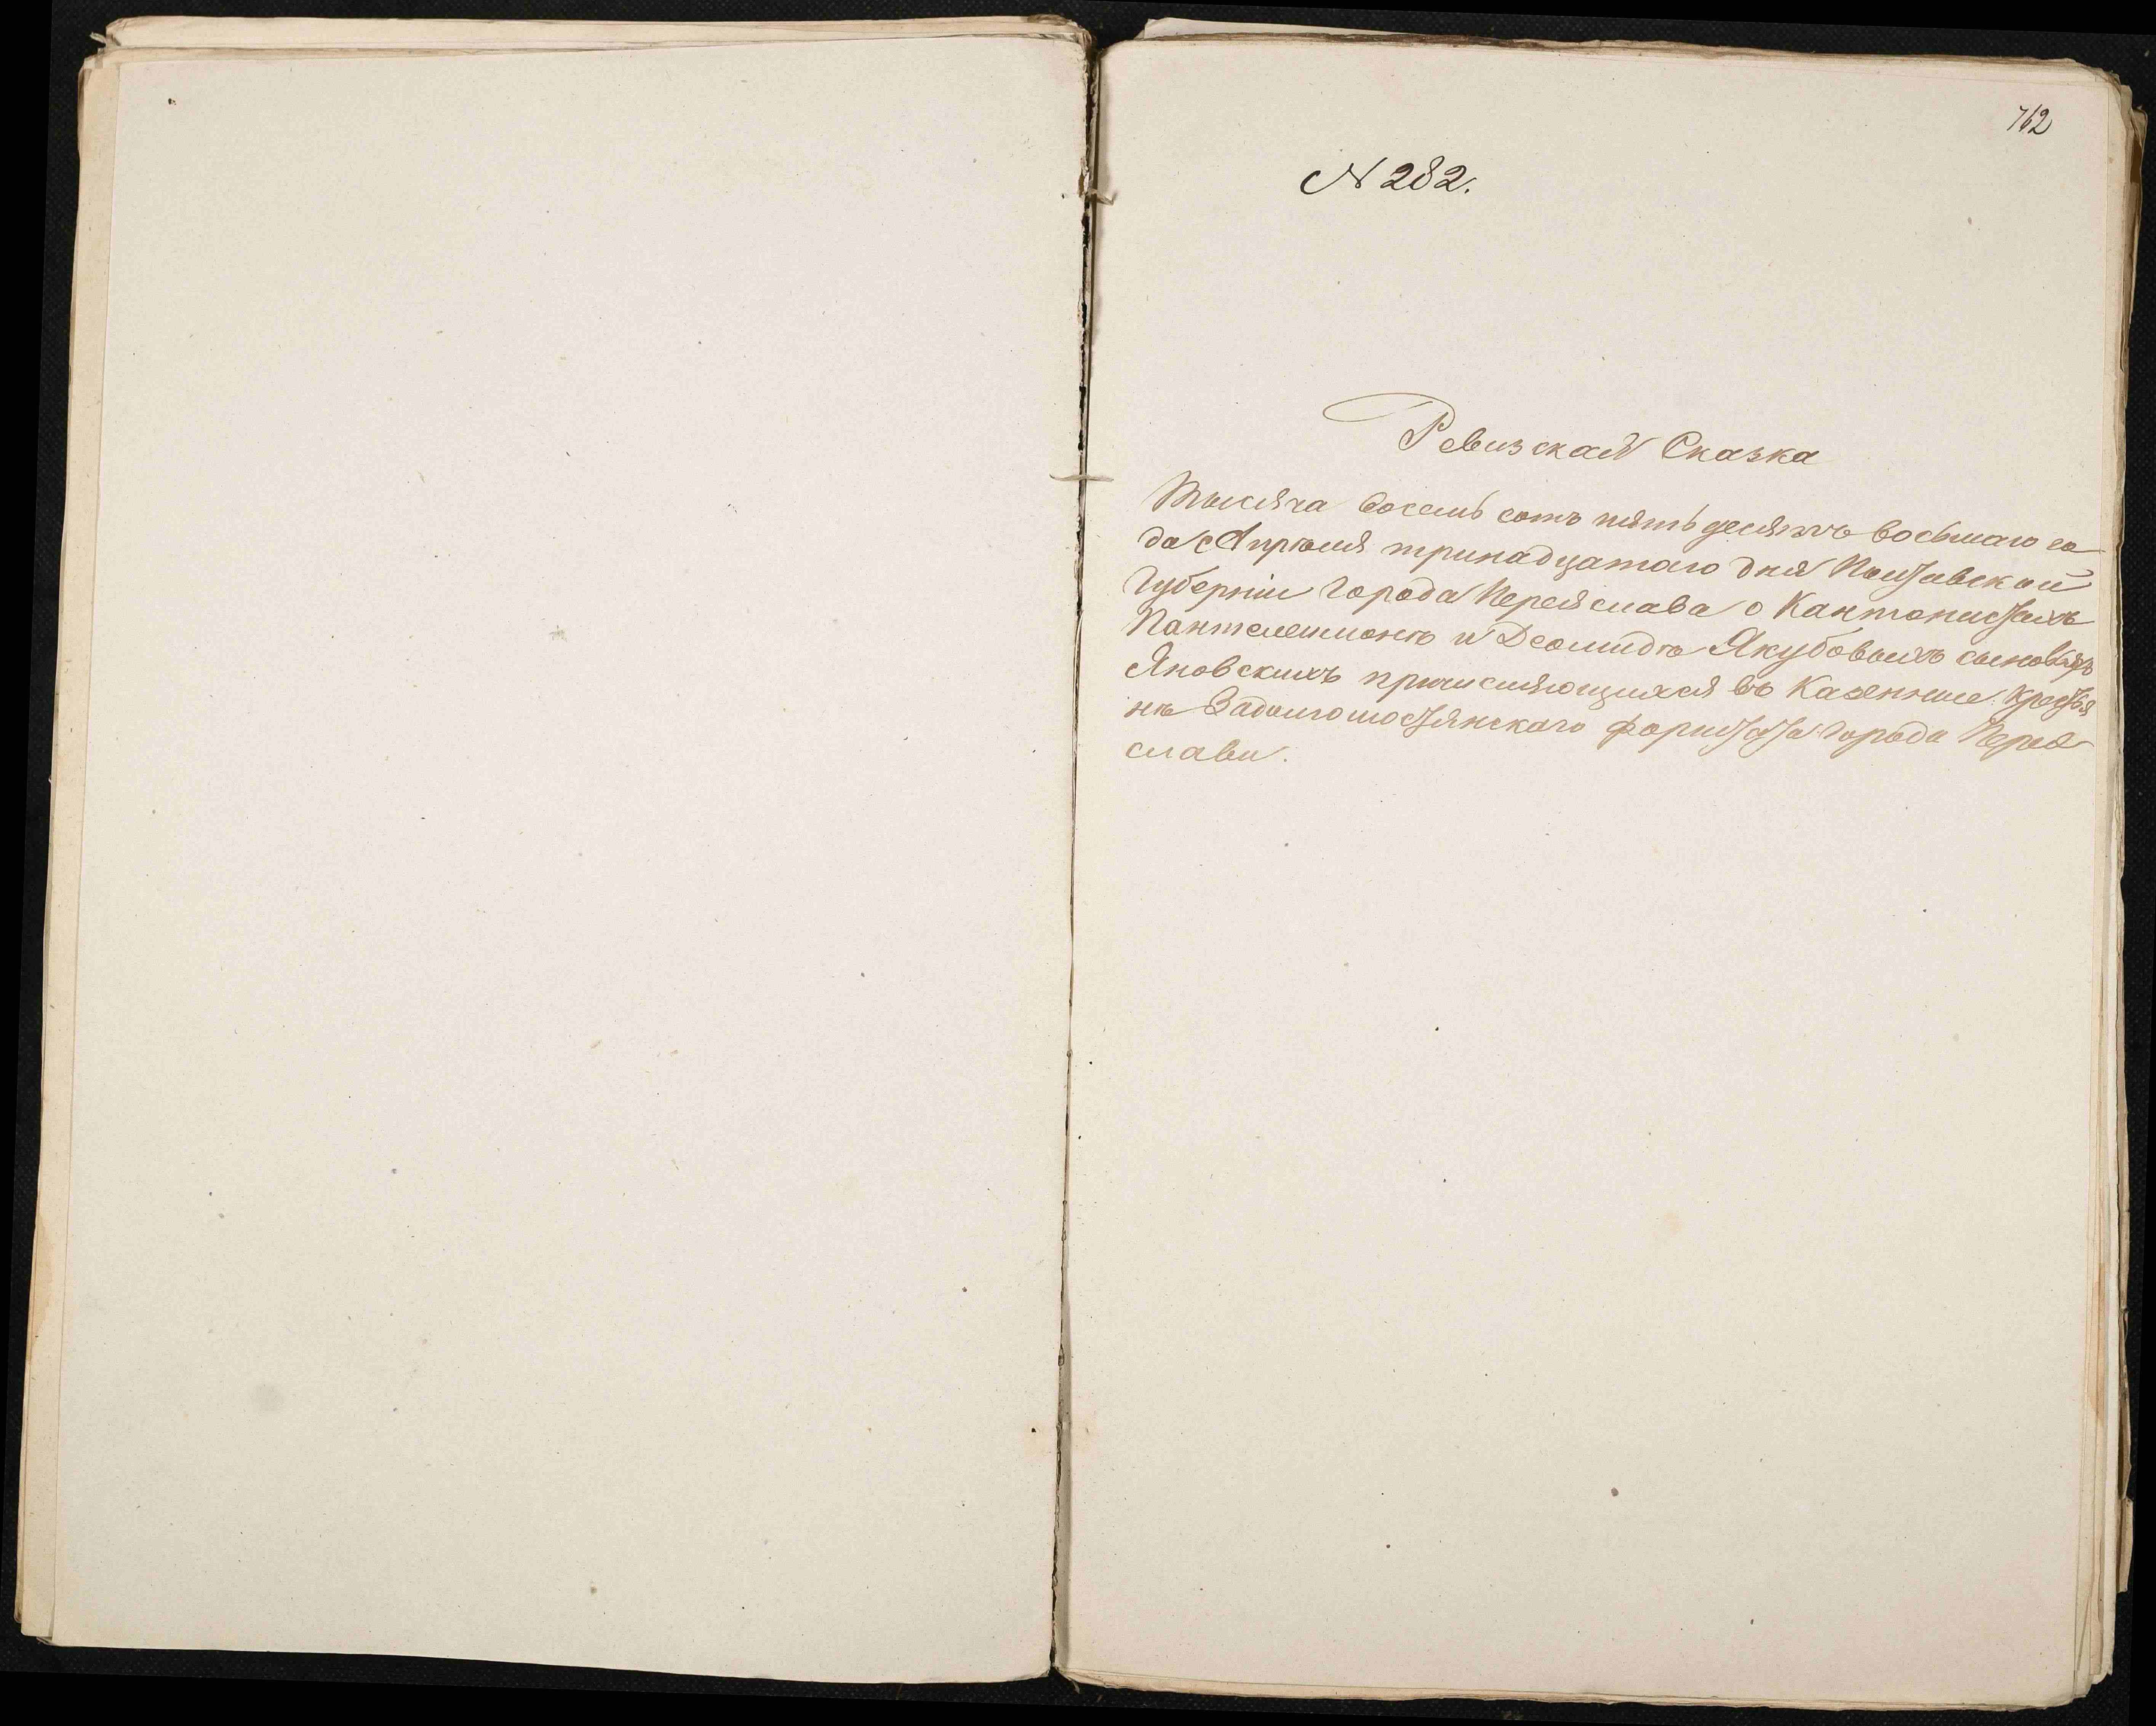 762
N 282.
Ревизская Сказка
Тысяча восемь сотъ пять десятъ восьмаго го
да Апрѣля тринадцатаго дня Полтавской
Губерніи Города Переяслава о Кантонистахъ
Пантелеимонѣ и Деомидѣ Якубовыхъ сыновьяхъ
Яновскихъ причисляющихся въ Казенные Крестья
не Города Перея
слава.